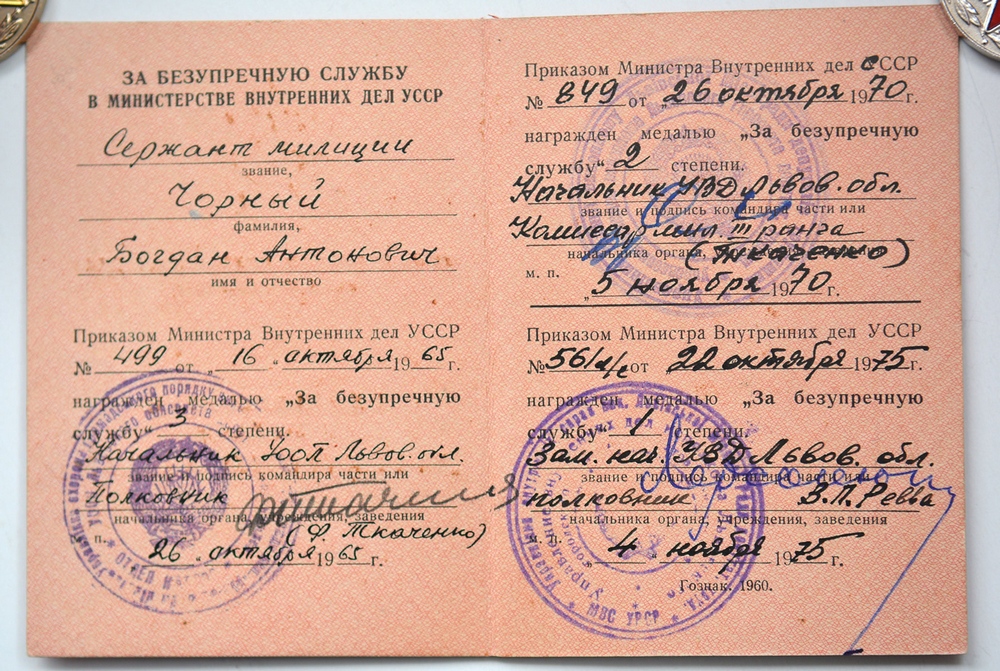 ЗА БЕЗУПРЕЧНУЮ СЛУЖБУ
В МИНИСТЕРСТВЕ ВНУТРЕННИХ ДЕЛ УССР
Сержант милиции
звание,
Чорный
фамилия,
Богдан Антонович
имя и отчество
Приказом Министра Внутренних дел УССР
№ 499 от „16„ октября 1965 г.
награжден медалью „За безупречную
службу“ 3 степени.
Начальник УООП Львов. обл.
звание и подпись командира части или
Полковник
начальника органа, учреждения, заведения
п. (Ф. Ткаченко)
26 „октября 1965 г.
Приказом Министра Внутренних дел СССР
№ 849 от „26 октября 1970 г.
награжден медалью „За безупречную
службу“ 2 степени.
Начальник УВД Львов. обл.
звание и подпись командира части или
Комиссар мил. III ранга
начальника органа,
(Ткаченко)
м. п.
„5 ноября 1970 г.
Приказом Министра Внутренних дел УССР
№ 561 л/с от 22 октября 1975 г.
награжден медалью „За безупречную
службу“ 1 степени.
Зам. нач. УВД Львов. обл.
звание и подпись командира части или
полковник В.П. Ревва
начальника органа, учреждения, заведения
м. п.
„4„ ноября 1975 г.
Гознак. 1960.
МВС УРСР